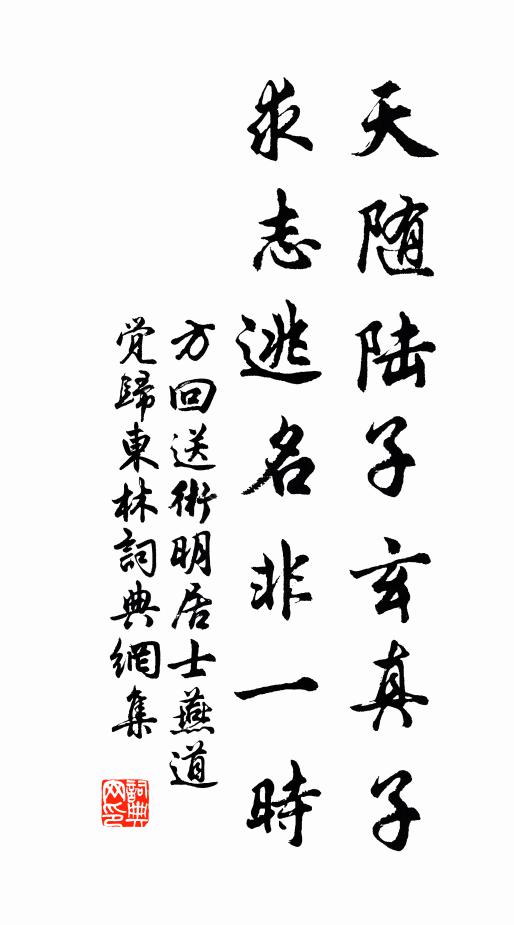 天随陆子玄真子
求志逃名非一時
方回送術明居士燕道
觉歸東林詞典網集
詞典
网印